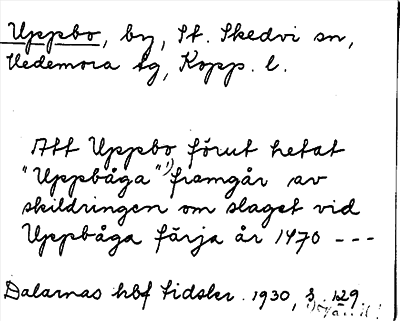 Uppbo, by, St. Skedvi sn,
Hedemora tg, Kopp. l.
Att Uppbo förut hetat
"Uppbåga" 1) framgår av
skildringen om slaget vid
Uppbåga färja år 1470 ---
Dalarnas hbf tidskr. 1930, s. 129